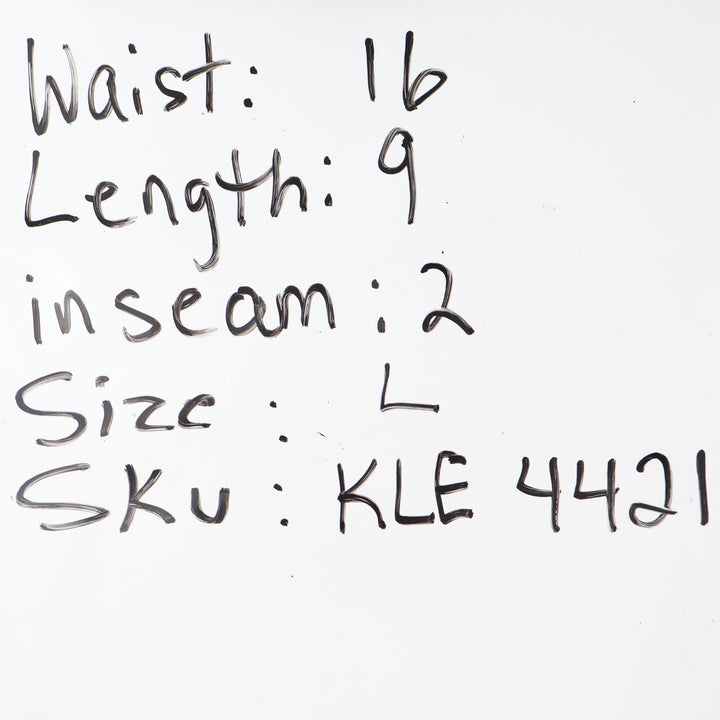 Waist: 16
Length: 9
inseam: 2
Size: L
SKU: KLE 4421